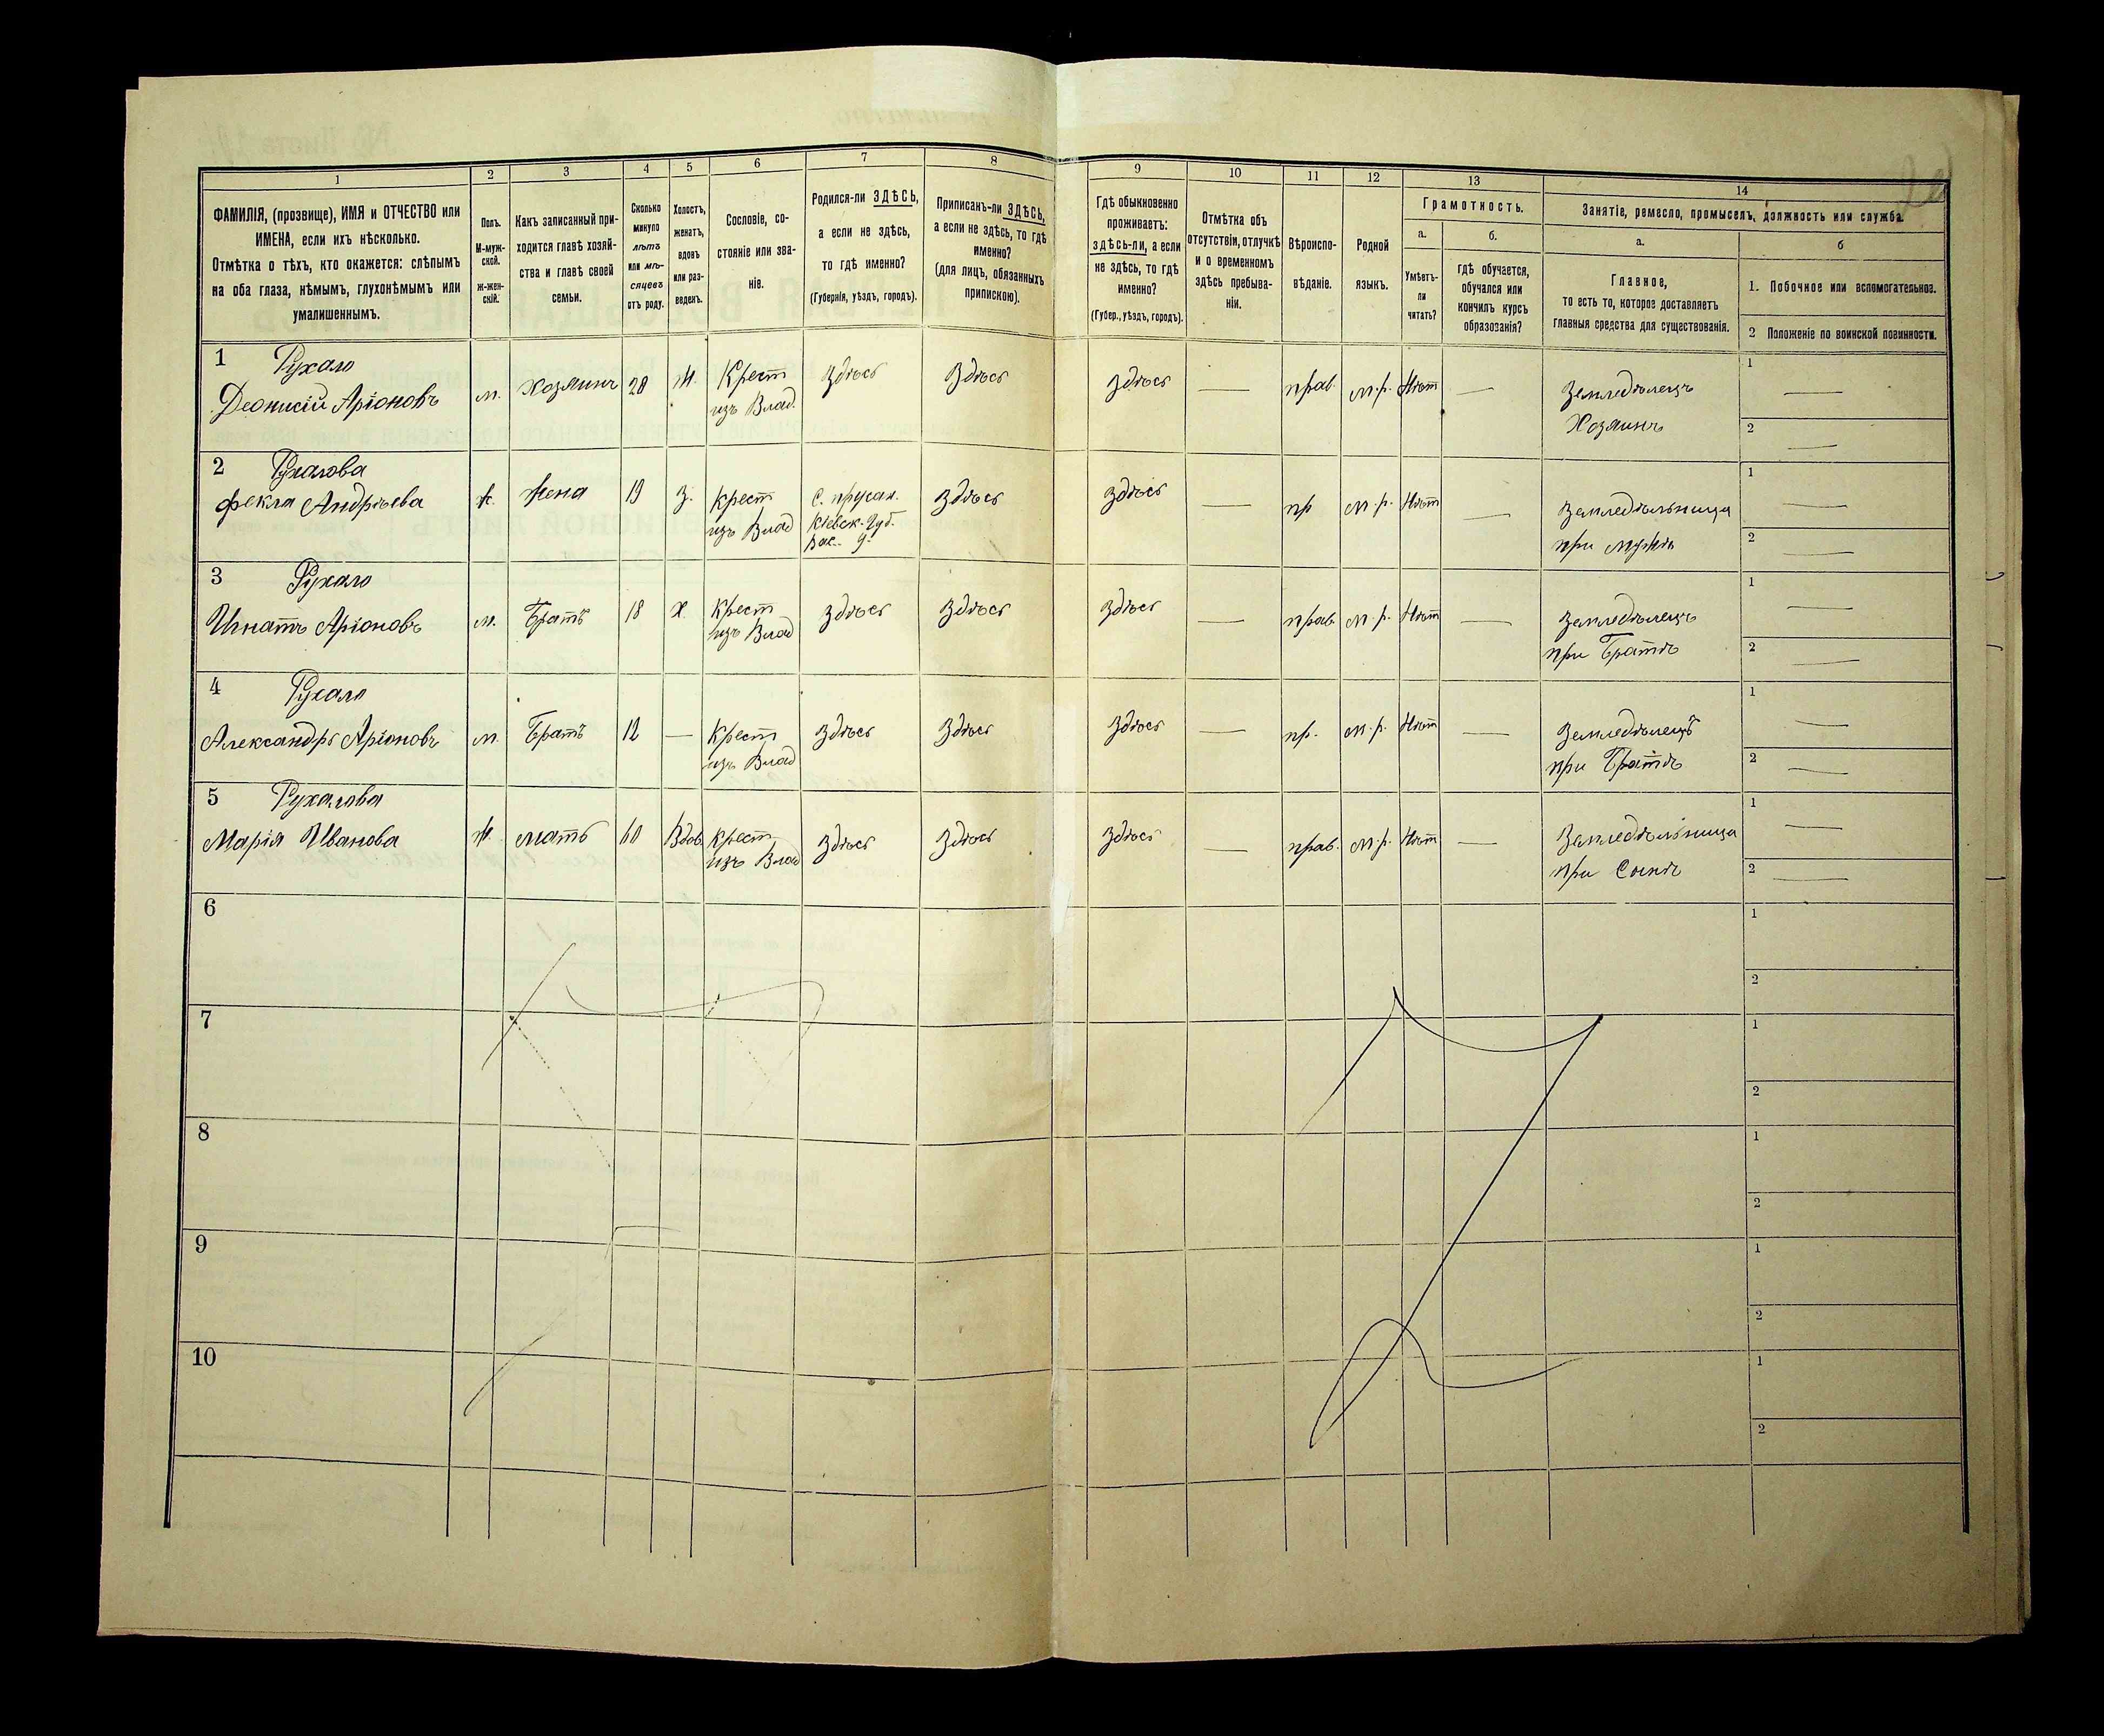 1
2
3
4
5
6
7
8
9
10
11
12
13
14
ФАМИЛІЯ, (прозвище), ИМЯ и ОТЧЕСТВО или
ИМЕНА, если ихъ нѣсколько.
Отмѣтка о тѣхъ, кто окажется: слѣпымъ
на оба глаза, нѣмымъ, глухонѣмымъ или
умалишеннымъ.
Полъ.
М-муж-
ской.
ж-жен-
скій.
Какъ записанный при-
ходится главѣ хозяй-
ства и главѣ своей
семьи.
Сколько
минуло
лѣтъ
или мѣ-
сяцевъ
отъ роду.
Холостъ,
женатъ,
вдовъ
или раз-
веденъ.
Сословіе, со-
стояніе или зва-
ніе.
Родился-ли ЗДѢСЬ,
а если не здѣсь,
то гдѣ именно?
(Губернія, уѣздъ, городъ).
Приписанъ-ли ЗДѢСЬ,
а если не здѣсь, то гдѣ
именно?
(для лицъ, обязанныхъ
припискою).
Гдѣ обыкновенно
проживаетъ:
здѣсь-ли, а если
не здѣсь, то гдѣ
именно?
(Губер., уѣздъ, городъ).
Отмѣтка объ
отсутствіи, отлучкѣ
и о временномъ
здѣсь пребыва-
ніи.
Вѣроиспо-
вѣданіе.
Родной
языкъ.
Грамотность.
а.
б.
Умѣетъ-
ли
читать?
гдѣ обучается,
обучался или
кончилъ курсъ
образованія?
Занятіе, ремесло, промыселъ, должность или служба.
а.
б
Главное,
то есть то, которое доставляетъ
главныя средства для существованія.
1. Побочное или вспомогательное.
2 Положеніе по воинской повинности.
1 Рухало
Деонисій Аріоновъ м. Хозяинъ 28 Ж. Крест изъ Влад. Здѣсь Здѣсь Здѣсь — прав. м.р. Нѣтъ — Земледѣлецъ
Хозяинъ
1 —
2 —
2 Рухалова
Фекла Андріева ж. Жена 19 З. Крест изъ Влад С. прусан. Кіевск. Губ. Вас. у. Здѣсь Здѣсь — пр м.р. Нѣтъ — Земледѣльница
при мужѣ
1 —
2 —
3 Рухало
Игнатъ Аріоновъ м. Братъ 18 Х Крест изъ Влад Здѣсь Здѣсь Здѣсь — прав. м.р. Нѣтъ — Земледѣлецъ
при Братѣ
1 —
2 —
4 Рухало
Александръ Аріоновъ м. Братъ 12 — Крест изъ Влад Здѣсь Здѣсь Здѣсь — пр. м.р. Нѣтъ — Земледѣлецъ
при Братѣ
1 —
2 —
5 Рухалова
Марія Иванова ж. мать 60 Вдов. крест изъ Влад Здѣсь Здѣсь Здѣсь — прав. м.р. Нѣтъ — Земледѣльница
при Сынѣ
1 —
2 —
6
1
2
7
1
2
8
1
2
9
1
2
10
1
2